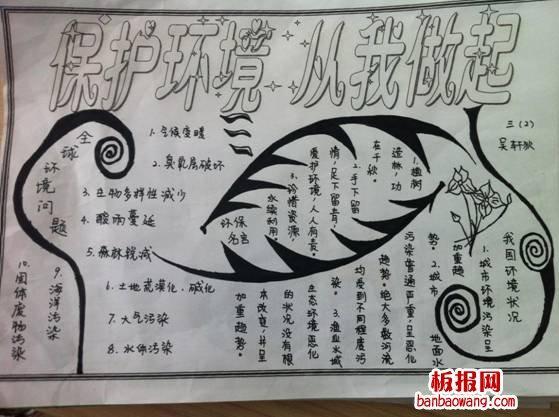 保护环境 从我做起
三(2)
全球环境问题
1. 气候变暖
2. 臭氧层破坏
3. 生物多样性减少
4. 酸雨蔓延
5. 森林锐减
6. 土地荒漠化、碱化
7. 大气污染
8. 水体污染
9. 海洋污染
10. 固体废物污染
环保
名言
1、植树
造林，功
在千秋。
2、手下留
情，足下留青
爱护环境，人人有责。
3、珍惜资源，
永续利用。
我国环境状况
1、城市环境污染呈
加重趋
势。2、城市 地面水
污染普遍严重，呈恶化
趋势。绝大多数河流
均受到不同程度污
染。3、渔业水域
生态环境恶化
的状况没有根
本改变，并呈
加重趋势。
板报网
banbaowang.com